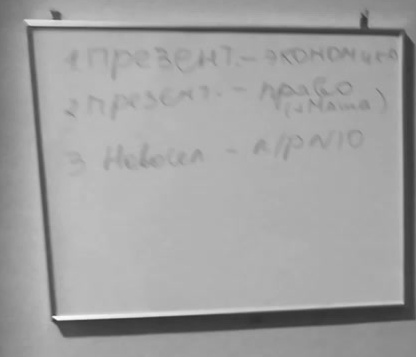 1 презент. - экономика
2 презент. - право
(+Маша)
3 - п/р №10